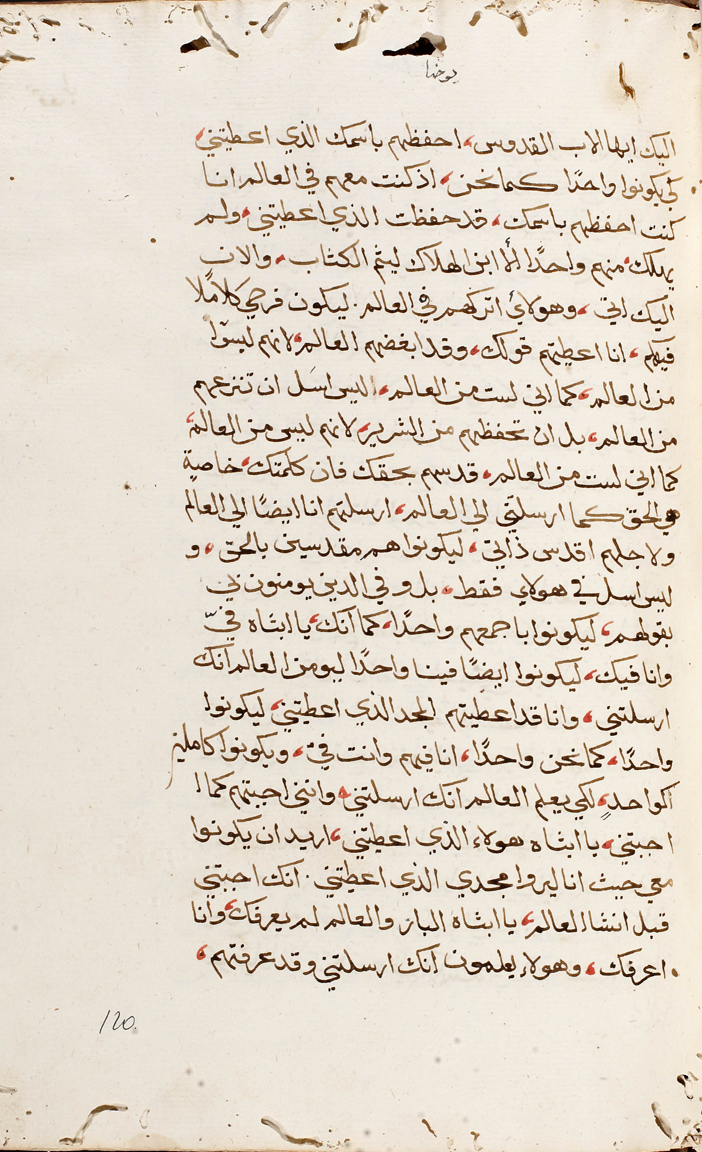 يوحنا
اليك ايها الاب القدوس، احفظهم باسمك الذي اعطيتني،
كي يكونوا واحدًا كما نحن، اذ كنت معهم في العالم انا
كنت احفظهم باسمك، قد حفظت الذي اعطيتني، ولم
يهلك، منهم واحدًا الّا ابن الهلاك ليتم الكتاب، والان
اليك اتي، وهولاي اتركهم في العالم. ليكون فرحي كاملا
فيهم، انا اعطيتهم قولك، وقد ابغضهم العالم، لانهم ليسوا
من العالم، كما اني لست من العالم، ليس اسَل ان تنزعهم
من العالم، بل ان تحفظهم من الشرير، لانهم ليس من العالم،
كما اني لست من العالم، قدسهم بحقك فان كلمتك، خاصية
هي الحق كما ارسلتني الى العالم، ارسلتهم انا ايضًا الى العالم
ولاجلهم اقدس ذاتي، ليكونوا هم مقدسين بالحق، و
ليس اسل في هولاي فقط، بل وفي الدين يومنون بي
بقولهم، ليكونوا باجمعهم واحدًا، كما انك، يا ابتاه فيّ
وانا فيك، ليكونوا ايضًا فينا واحدًا ليومن العالم انك
ارسلتني، وانا قد اعطيتهم المجد الذي اعطيتني، ليكونوا
واحدًا، كما نحن واحدًا، انا فيهم وانت فيّ، ويكونوا كاملين
كواحدٍ، لكي يعلم العالم انك ارسلتني، وانني احببتهم كما
احبتني، يا ابتاه هولاء الذي اعطيتني، اريد ان يكونوا
معي حيث انا ليروا مجدي الذي اعطيتني. انك احببتني
قبل انشاء العالم، يا ابتاه البار والعالم لم يعرفك، وانا
اعرفك، وهولاء يعلمون انك ارسلتني وقد عرفتهم،
120